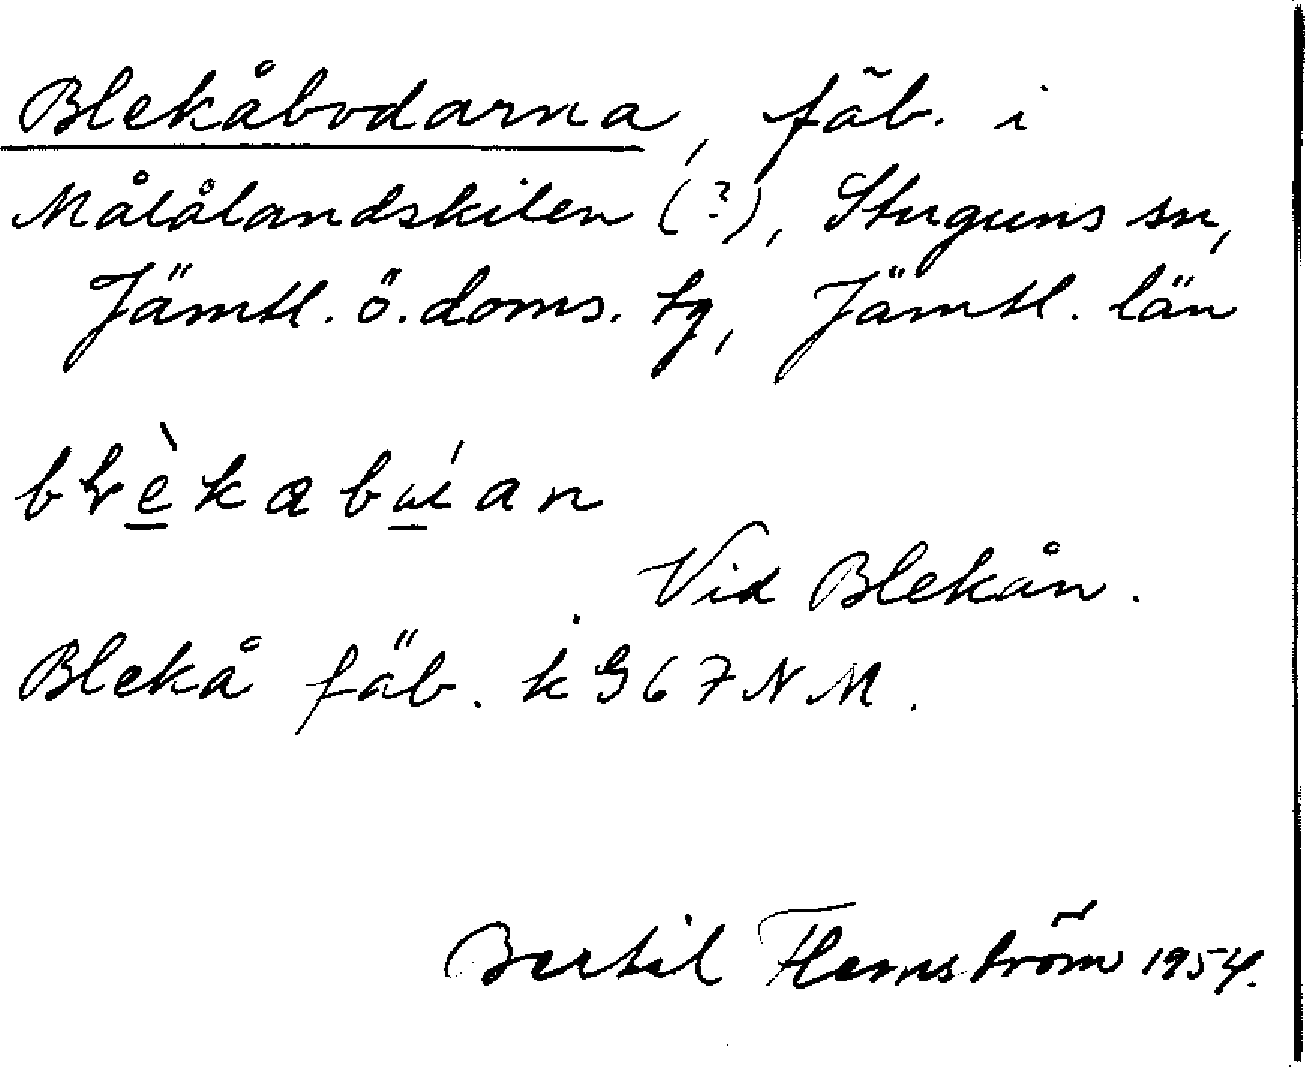 Blekåbodarna, fäb. i
Målålandskilen (?), Stuguns sn,
Jämtl. ö. doms. tg, Jämtl. län
Vid Blekån.
Blekå fäb. k G 67 N M.
Bertil Flemström 1954.